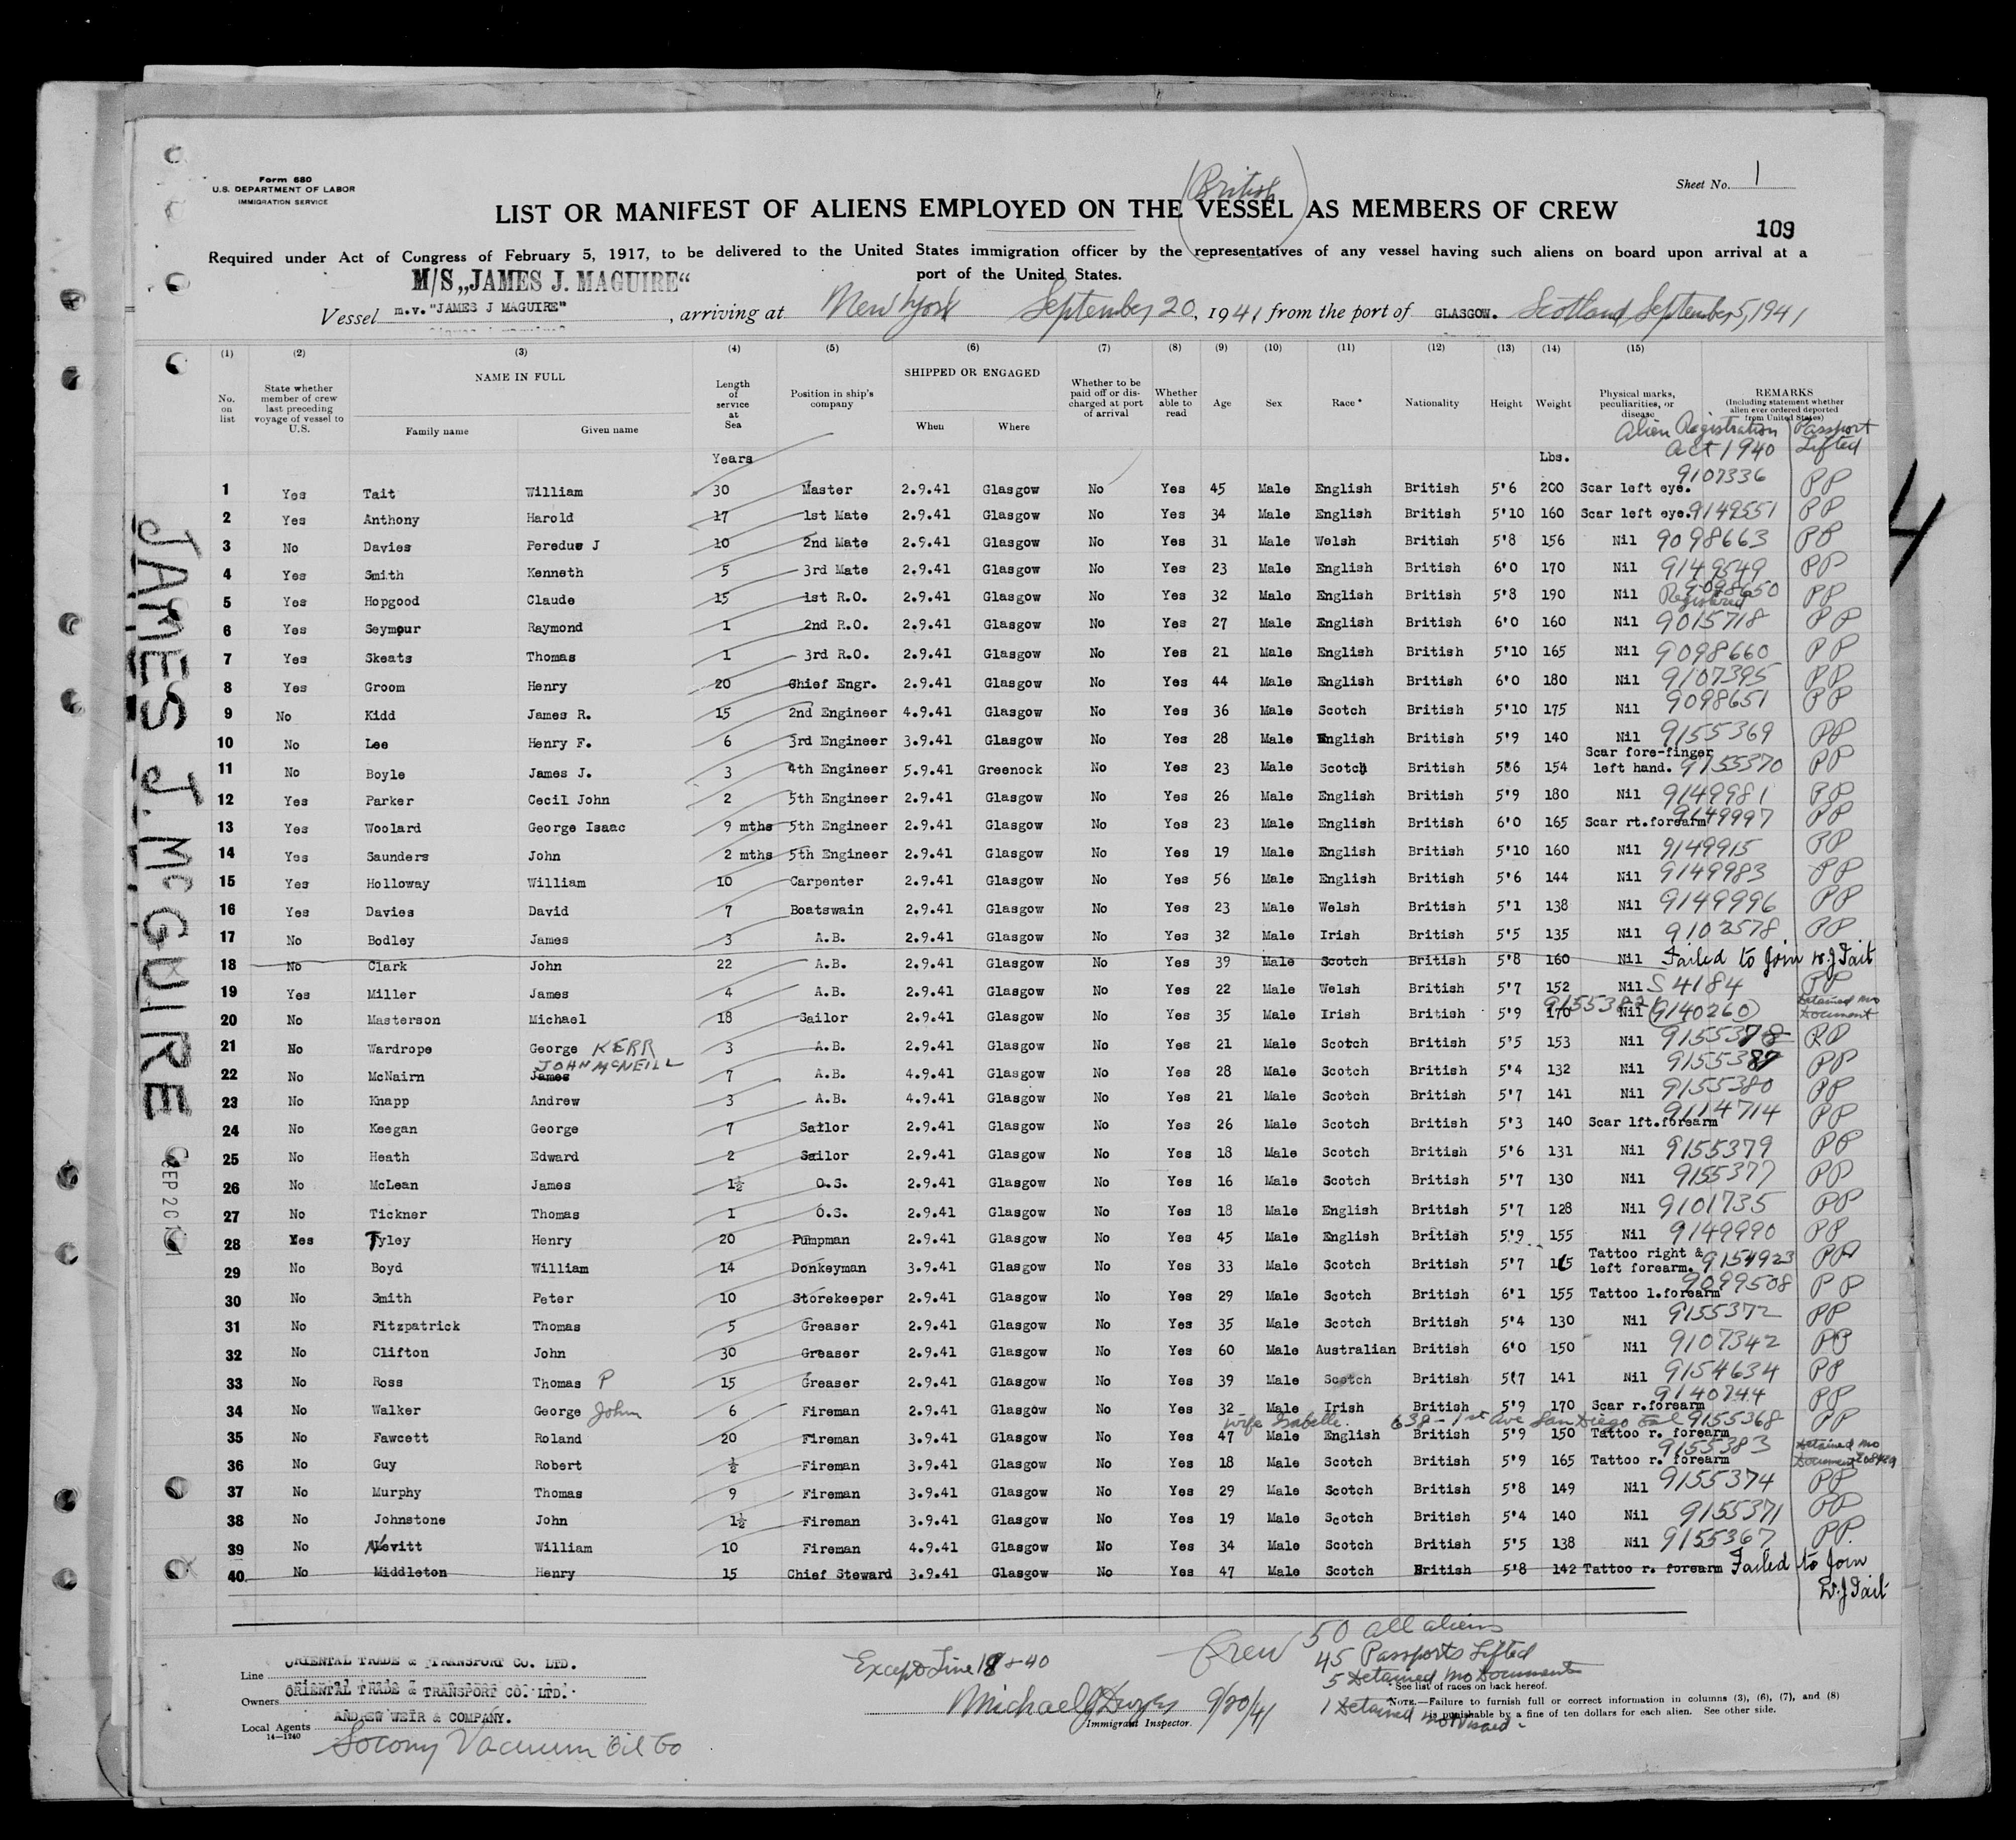 Form 680
U.S. DEPARTMENT OF LABOR
IMMIGRATION SERVICE
Sheet No. 1
(British)
LIST OR MANIFEST OF ALIENS EMPLOYED ON THE VESSEL AS MEMBERS OF CREW
109
Required under Act of Congress of February 5, 1917, to be delivered to the United States immigration officer by the representatives of any vessel having such aliens on board upon arrival at a
port of the United States.
M/S „JAMES J. MAGUIRE“
Vessel m.v. "JAMES J MAGUIRE", arriving at New York September 20, 1941 from the port of GLASGOW. Scotland, September 5, 1941
(1) (2) (3) (4) (5) (6) (7) (8) (9) (10) (11) (12) (13) (14) (15)
No. on list
State whether member of crew last preceding voyage of vessel to U.S.
NAME IN FULL
Family name
Given name
Length of service at Sea
Position in ship's company
SHIPPED OR ENGAGED
When
Where
Whether to be paid off or discharged at port of arrival
Whether able to read
Age
Sex
Race *
Nationality
Height
Weight
Physical marks, peculiarities, or disease
REMARKS
(Including statement whether alien ever ordered deported from United States)
Alien Registration Act 1940
Passport Lifted
Years
Lbs.
1 Yes Tait William 30 Master 2.9.41 Glasgow No Yes 45 Male English British 5'6 200 Scar left eye. 9107336 PP
2 Yes Anthony Harold 17 1st Mate 2.9.41 Glasgow No Yes 34 Male English British 5'10 160 Scar left eye. 9149551 PP
3 No Davies Peredue J 10 2nd Mate 2.9.41 Glasgow No Yes 31 Male Welsh British 5'8 156 Nil 9098663 PP
4 Yes Smith Kenneth 5 3rd Mate 2.9.41 Glasgow No Yes 23 Male English British 6'0 170 Nil 9149549 PP
5 Yes Hopgood Claude 15 1st R.O. 2.9.41 Glasgow No Yes 32 Male English British 5'8 190 Nil 9098650 Registered PP
6 Yes Seymour Raymond 1 2nd R.O. 2.9.41 Glasgow No Yes 27 Male English British 6'0 160 Nil 9015718 PP
7 Yes Skeats Thomas 1 3rd R.O. 2.9.41 Glasgow No Yes 21 Male English British 5'10 165 Nil 9098660 PP
8 Yes Groom Henry 20 Chief Engr. 2.9.41 Glasgow No Yes 44 Male English British 6'0 180 Nil 9107395 PP
9 No Kidd James R. 15 2nd Engineer 4.9.41 Glasgow No Yes 36 Male Scotch British 5'10 175 Nil 9098651 PP
10 No Lee Henry F. 6 3rd Engineer 3.9.41 Glasgow No Yes 28 Male English British 5'9 140 Nil 9155369 PP
11 No Boyle James J. 3 4th Engineer 5.9.41 Greenock No Yes 23 Male Scotch British 5'6 154 Scar fore-finger left hand. 9155370 PP
12 Yes Parker Cecil John 2 5th Engineer 2.9.41 Glasgow No Yes 26 Male English British 5'9 180 Nil 9149981 PP
13 Yes Woolard George Isaac 9 mths 5th Engineer 2.9.41 Glasgow No Yes 23 Male English British 6'0 165 Scar rt.forearm 9149997 PP
14 Yes Saunders John 2 mths 5th Engineer 2.9.41 Glasgow No Yes 19 Male English British 5'10 160 Nil 9149915 PP
15 Yes Holloway William 10 Carpenter 2.9.41 Glasgow No Yes 56 Male English British 5'6 144 Nil 9149983 PP
16 Yes Davies David 7 Boatswain 2.9.41 Glasgow No Yes 23 Male Welsh British 5'1 138 Nil 9149996 PP
17 No Bodley James 3 A.B. 2.9.41 Glasgow No Yes 32 Male Irish British 5'5 135 Nil 9102578 PP
18 No Clark John 22 A.B. 2.9.41 Glasgow No Yes 39 Male Scotch British 5'8 160 Nil Failed to join W.J Tait
19 Yes Miller James 4 A.B. 2.9.41 Glasgow No Yes 22 Male Welsh British 5'7 152 Nil S4184 PP
20 No Masterson Michael 18 Sailor 2.9.41 Glasgow No Yes 35 Male Irish British 5'9 170 Nil (9140260) Detained no Document
21 No Wardrope George KERR 3 A.B. 2.9.41 Glasgow No Yes 21 Male Scotch British 5'5 153 Nil 9155378 PP
22 No McNairn James JOHN MCNEILL 7 A.B. 4.9.41 Glasgow No Yes 28 Male Scotch British 5'4 132 Nil PP
23 No Knapp Andrew 3 A.B. 4.9.41 Glasgow No Yes 21 Male Scotch British 5'7 141 Nil 9155380 PP
24 No Keegan George 7 Sailor 2.9.41 Glasgow No Yes 26 Male Scotch British 5'3 140 Scar lft.forearm 9114714 PP
25 No Heath Edward 2 Sailor 2.9.41 Glasgow No Yes 18 Male Scotch British 5'6 131 Nil 9155379 PP
26 No McLean James 1½ O.S. 2.9.41 Glasgow No Yes 16 Male Scotch British 5'7 130 Nil 9155377 PP
27 No Tickner Thomas 1 O.S. 2.9.41 Glasgow No Yes 18 Male English British 5'7 128 Nil 9101735 PP
28 Yes Tyley Henry 20 Pumpman 2.9.41 Glasgow No Yes 45 Male English British 5'9 155 Nil 9149990 PP
29 No Boyd William 14 Donkeyman 3.9.41 Glasgow No Yes 33 Male Scotch British 5'7 Tattoo right & left forearm. 9154923 PP
30 No Smith Peter 10 Storekeeper 2.9.41 Glasgow No Yes 29 Male Scotch British 6'1 155 Tattoo l.forearm 9099508 PP
31 No Fitzpatrick Thomas 5 Greaser 2.9.41 Glasgow No Yes 35 Male Scotch British 5'4 130 Nil 9155372 PP
32 No Clifton John 30 Greaser 2.9.41 Glasgow No Yes 60 Male Australian British 6'0 150 Nil 9107342 PP
33 No Ross Thomas P 15 Greaser 2.9.41 Glasgow No Yes 39 Male Scotch British 5'7 141 Nil 9154634 PP
34 No Walker George John 6 Fireman 2.9.41 Glasgow No Yes 32 Male Irish British 5'9 170 Scar r.forearm 9140744 PP
wife Isabelle. 638 - 1st Ave San Diego Cal
35 No Fawcett Roland 20 Fireman 3.9.41 Glasgow No Yes 47 Male English British 5'9 150 Tattoo r. forearm 9155368 PP
36 No Guy Robert ½ Fireman 3.9.41 Glasgow No Yes 18 Male Scotch British 5'9 165 Tattoo r. forearm 9155383 Detained no Document
37 No Murphy Thomas 9 Fireman 3.9.41 Glasgow No Yes 29 Male Scotch British 5'8 149 Nil 9155374 PP
38 No Johnstone John 1½ Fireman 3.9.41 Glasgow No Yes 19 Male Scotch British 5'4 140 Nil 9155371 PP
39 No Nevitt William 10 Fireman 4.9.41 Glasgow No Yes 34 Male Scotch British 5'5 138 Nil 9155367 PP.
40 No Middleton Henry 15 Chief Steward 3.9.41 Glasgow No Yes 47 Male Scotch British 5'8 142 Tattoo r. forearm Failed to Join W.J Tait
JAMES J. McGUIRE
4
Line ORIENTAL TRADE & TRANSPORT CO. LTD.
Owners ORIENTAL TRADE & TRANSPORT CO. LTD.
Local Agents ANDREW WEIR & COMPANY.
14—1240
Socony Vacuum Oil Co
Except Line 18 & 40
Immigrant Inspector. 9/20/41
Crew 50 all aliens
45 Passports Lifted
5 Detained no Documents
*See list of races on back hereof.
NOTE.—Failure to furnish full or correct information in columns (3), (6), (7), and (8)
is punishable by a fine of ten dollars for each alien. See other side.
1 Detained